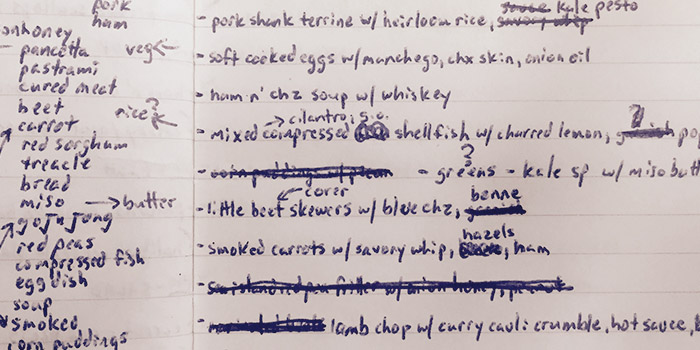 pork
ham
onhoney
pancetta veg
pastrami
cured meat
beet
rice?
carrot
red sorghum
treacle
bread
miso → butter
gojujong
red peas
compressed fish
egg dish
soup
smoked
corn puddings
kale pesto
- pork shank terrine w/ heirloom rice, savory whip
- soft cooked eggs w/ manchego, chx skin, onion oil
- ham n' chz soup w/ whiskey
→ cilantro, s.o.
- mixed compressed shellfish w/ charred lemon, ?
- corn puddings w/
?
- greens - kale sp w/ miso butt
corer
- little beet skewers w/ blue chz, benne
hazels
- smoked carrots w/ savory whip, ham
- lamb chop w/ curry cauli crumble, hot sauce,